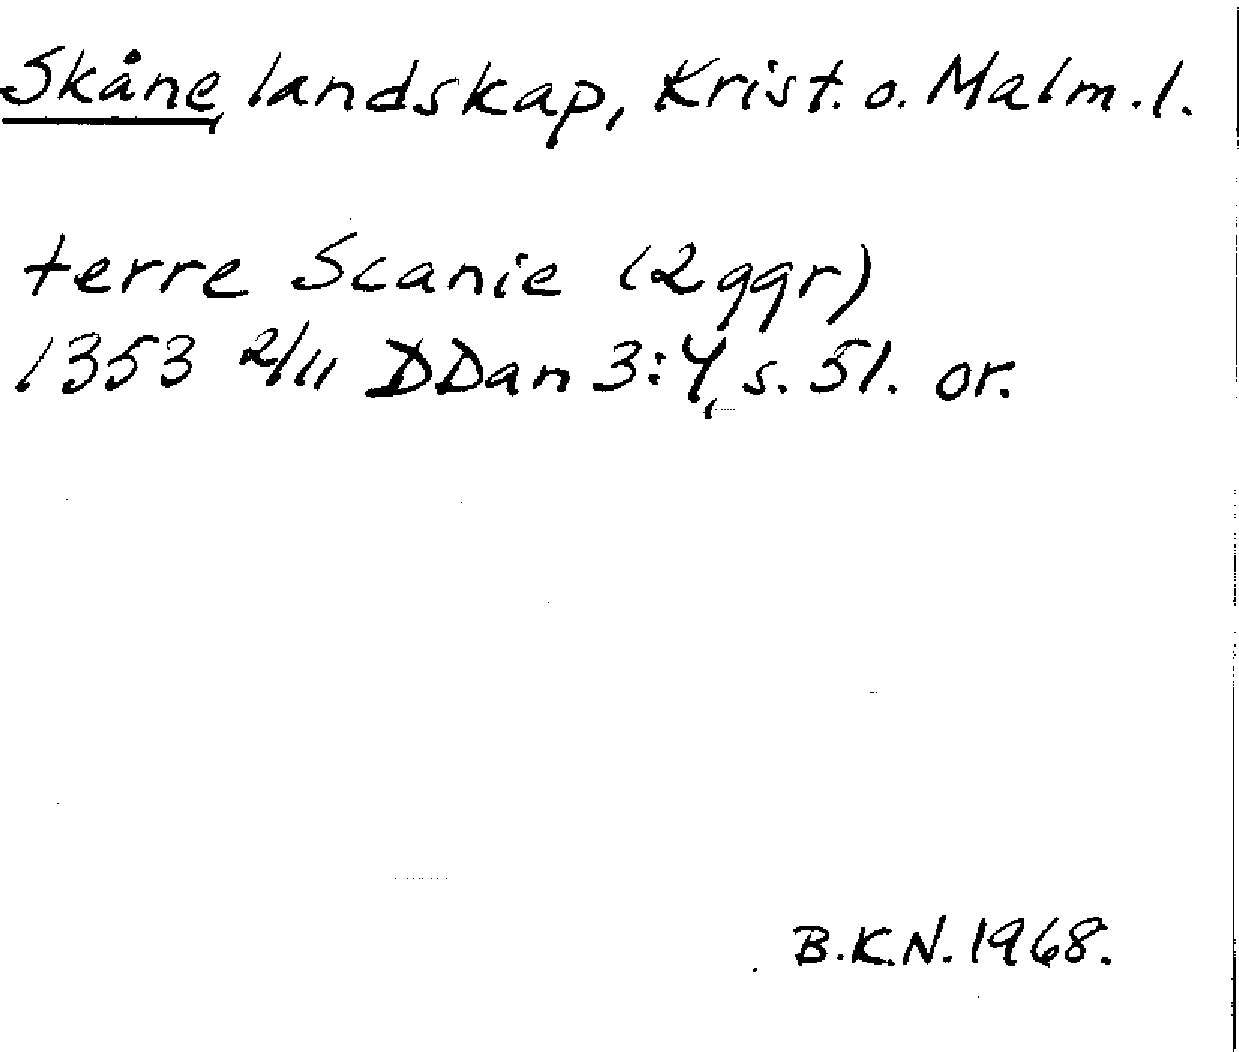 Skåne, landskap, Krist. o. Malm. l.
terre Scanie (2 ggr)
1353 2/11 DDan 3:4, s. 51. or.
B.K.N. 1968.